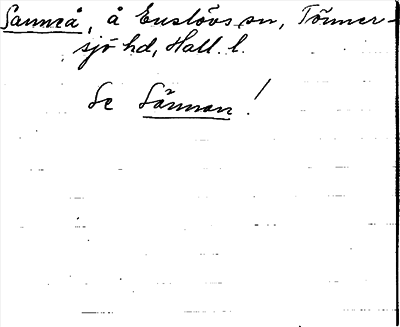 Sannså, å Enslövs sn, Tönner-
sjö hd, Hall. l.
Se Sännan!